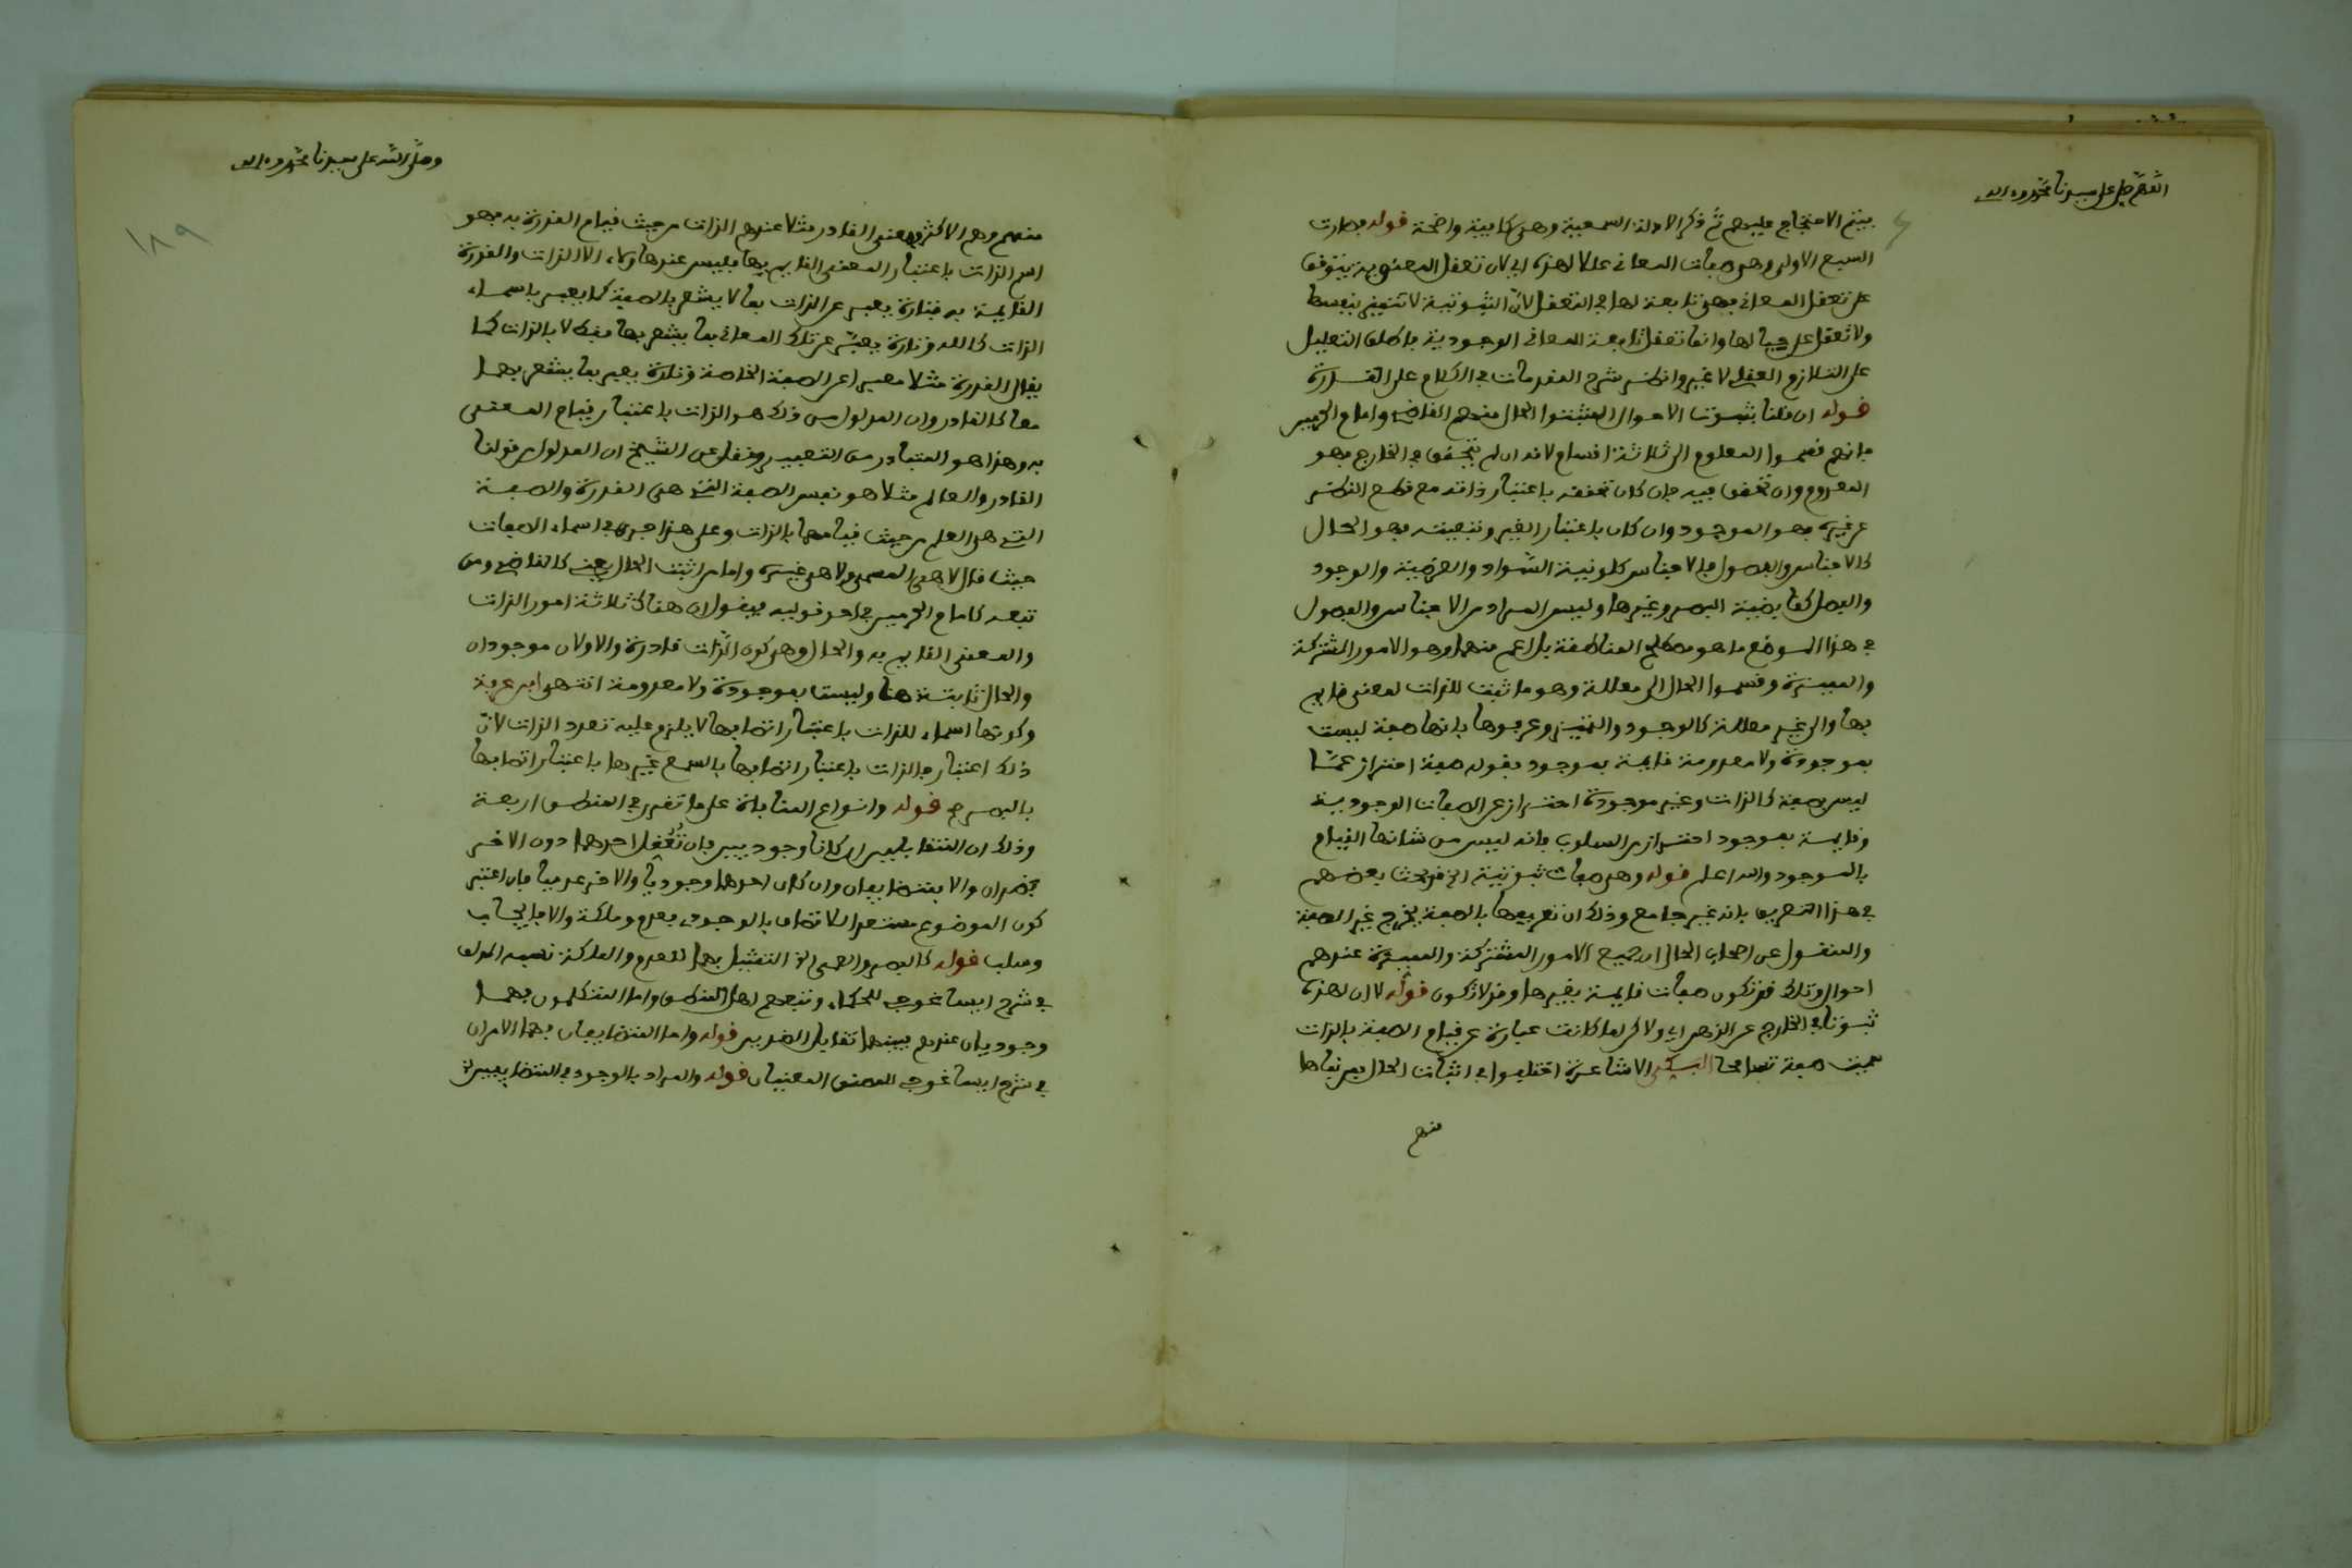 اللهم صل على سيدنا محمد وءاله
فيتم الاحتجاج عليهم ثم ذكر الادلة السمعية وهي كافية واضحة قوله فصارت
السبع الاولى وهي صفات المعاني عللا لهذه اي لان تعقل المعنوية يتوقف
على تعقل المعاني فهي تابعة لها في التعقل لان الثبوتية لا تتميز بنفسها
ولا تعقل على حيالها وانما تعقل تابعة للمعاني الوجودية باطلاق التعليل
على التلازم العقلي لا غير وانظر شرح المقدمات في الكلام على القدرة
قوله ان قلنا بثبوت الاحوال المثبتوا الحال منهم القاضي وامام الحرمين
فانهم قسموا المعلوم الى ثلاثة اقسام لانه ان لم يتحقق في الخارج فهو
المعدوم وان تحقق فيه فان كان تحققه باعتبار ذاته مع قطع النظر
عن غيره فهو الموجود وان كان باعتبار الغير وتبعيته فهو الحال
كالاجناس والفصول فالاجناس كلونية السواد والعرضية والوجود
والفصل كقابضية البصر وغيرها وليس المراد من الاجناس والفصول
في هذا الموضع ما هو مصطلح المناطقة بل اعم منهما وهو الامور المشتركة
والمميزة وقسموا الحال الى معللة وهو ما ثبت للذات لمعنى قايم
بها والى غير معللة كالوجود والتميز وعرفوها بانها صفة ليست
بموجودة ولا معدومة قايمة بموجود فقوله صفة احتراز عما
ليس بصفة كالذات وغير موجودة احتراز عن الصفات الوجودية
وقايمة بموجود احتراز من السلوب فانه ليس من شانها القيام
بالموجود والله اعلم قوله وهي صفات ثبوتية الخ قد بحث بعضهم
في هذا التعريف بانه غير جامع وذلك ان تعريفها بالصفة يخرج غير الصفة
والمنقول عن اصحاب الحال ان جميع الامور المشتركة والمميزة عندهم
احوال وتلك قد تكون صفات قايمة بغيرها وقد لا تكون قوله لان لهذه
ثبوتا في الخارج عن الذهن اي ولاكن لما كانت عبارة عن قيام الصفة بالذات
سميت صفة تسامحا السكتي الاشاعرة اختلفوا في اثبات الحال فمن نفاها
منهم
وصلى الله على سيدنا محمد وءاله
١٨٩
منهم وهم الاكثر فمعنى القادر مثلا عندهم الذات من حيث قيام القدرة به فهو
اسم الذات باعتبار المعنى القايم بها فليس عند هاولاء الا الذات والقدرة
القايمة به فتارة يعبر عن الذات بما لا يشعر بالصفة كما يعبر باسماء
الذات كالله وتارة يعبّر عن تلك المعاني بما يشعر بها فقط لا بالذات كما
يقال القدرة مثلا معبرا عن الصفة الخاصة وتارة يعبر بما يشعر بهما
معا كالقادر وان المدلول من ذلك هو الذات باعتبار قيام المعنى
به وهذا هو المتبادر من التعبير ونقل عن الشيخ ان المدلول من قولنا
القادر والعالم مثلا هو نفس الصفة التي هي القدرة والصفة
التي هي العلم من حيث قيامها بالذات وعلى هذا جرى في اسماء الصفات
حيث قال لا هي المسمى ولا هي غيره واما من اثبت الحال يعني كالقاضي ومن
تبعه كامام الحرمين في احد قوليه فيقول ان هناك ثلاثة امور الذات
والمعنى القايم به والحال وهي كون الذات قادرة والاولان موجودان
والحال ثابتة هنا وليست بموجودة ولا معدومة انتهى ابن عرفة
وكونها اسماء للذات باعتبار اتصافها لا يلزم عليه تعدد الذات لان
ذلك اعتبار فالذات باعتبار اتصافها بالسمع غيرها باعتبار اتصافها
بالبصر قوله وانواع المنافاة على ما تقرر في المنطق اربعة
وذلك ان المتقابلين ان كانا وجوديين فان تُعُقِل احدهما دون الاخر
فضدان والا فمتضايفان وان كان احدهما وجوديا والاخر عدميا فان اعتبر
كون الموضوع مستعدا للاتصاف بالوجودي فعدم وملكة والا فايجاب
وسلب قوله كالبصر والعمى الخ التمثيل بهما للعدم والملكة نسبه المؤلف
في شرح ايساغوجي للحكماء وتبعهم اهل المنطق واما المتكلمون فهما
وجوديان عندهم بينهما تقابل الضدين قوله واما المتضايفان فهما الامران
في شرح ايساغوجي المعنيان قوله والمراد بالوجود في المتضايفين الخ